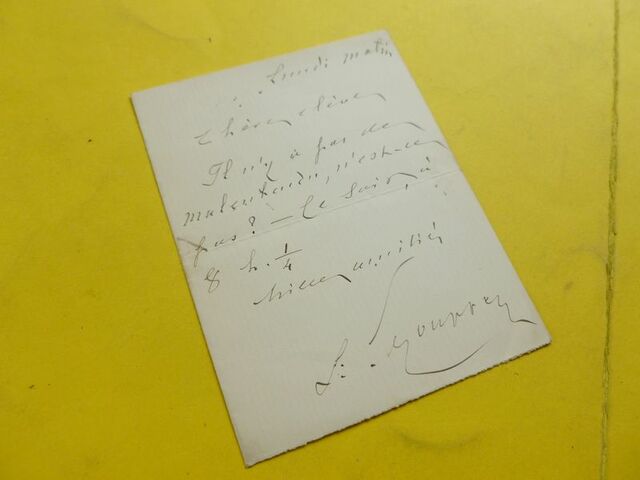 Lundi matin
Chère élève
Il n'y a pas de
malentendu, n'est-ce
pas? — Ce soir, à
8 h. 1/4
Mille amitiés